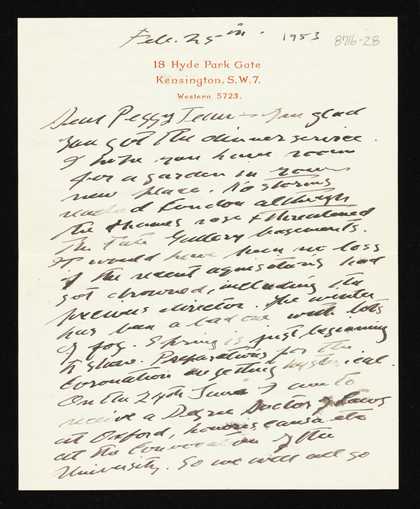 Feb. 25th. 1953 8716-28
18 Hyde Park Gate
Kensington. S.W.7.
Western 5723.
Dear Peggy Jean — I'm glad
you got the dinner service.
I hope you have room
for a garden in your
new place. No storms
reached London although
the Thames rose & threatened
the Tate Gallery basements.
It would have been no loss
if the recent aquisitions had
got drowned, including the
previous director. The winter
has been a bad one with lots
of fog. Spring is just beginning
to show. Preparations for the
Coronation are getting hysterical.
On the 24th June I am to
receive a Degree Doctor of Laws
at Oxford, honoris causa etc
at the Convocation of the
University. So we will all go